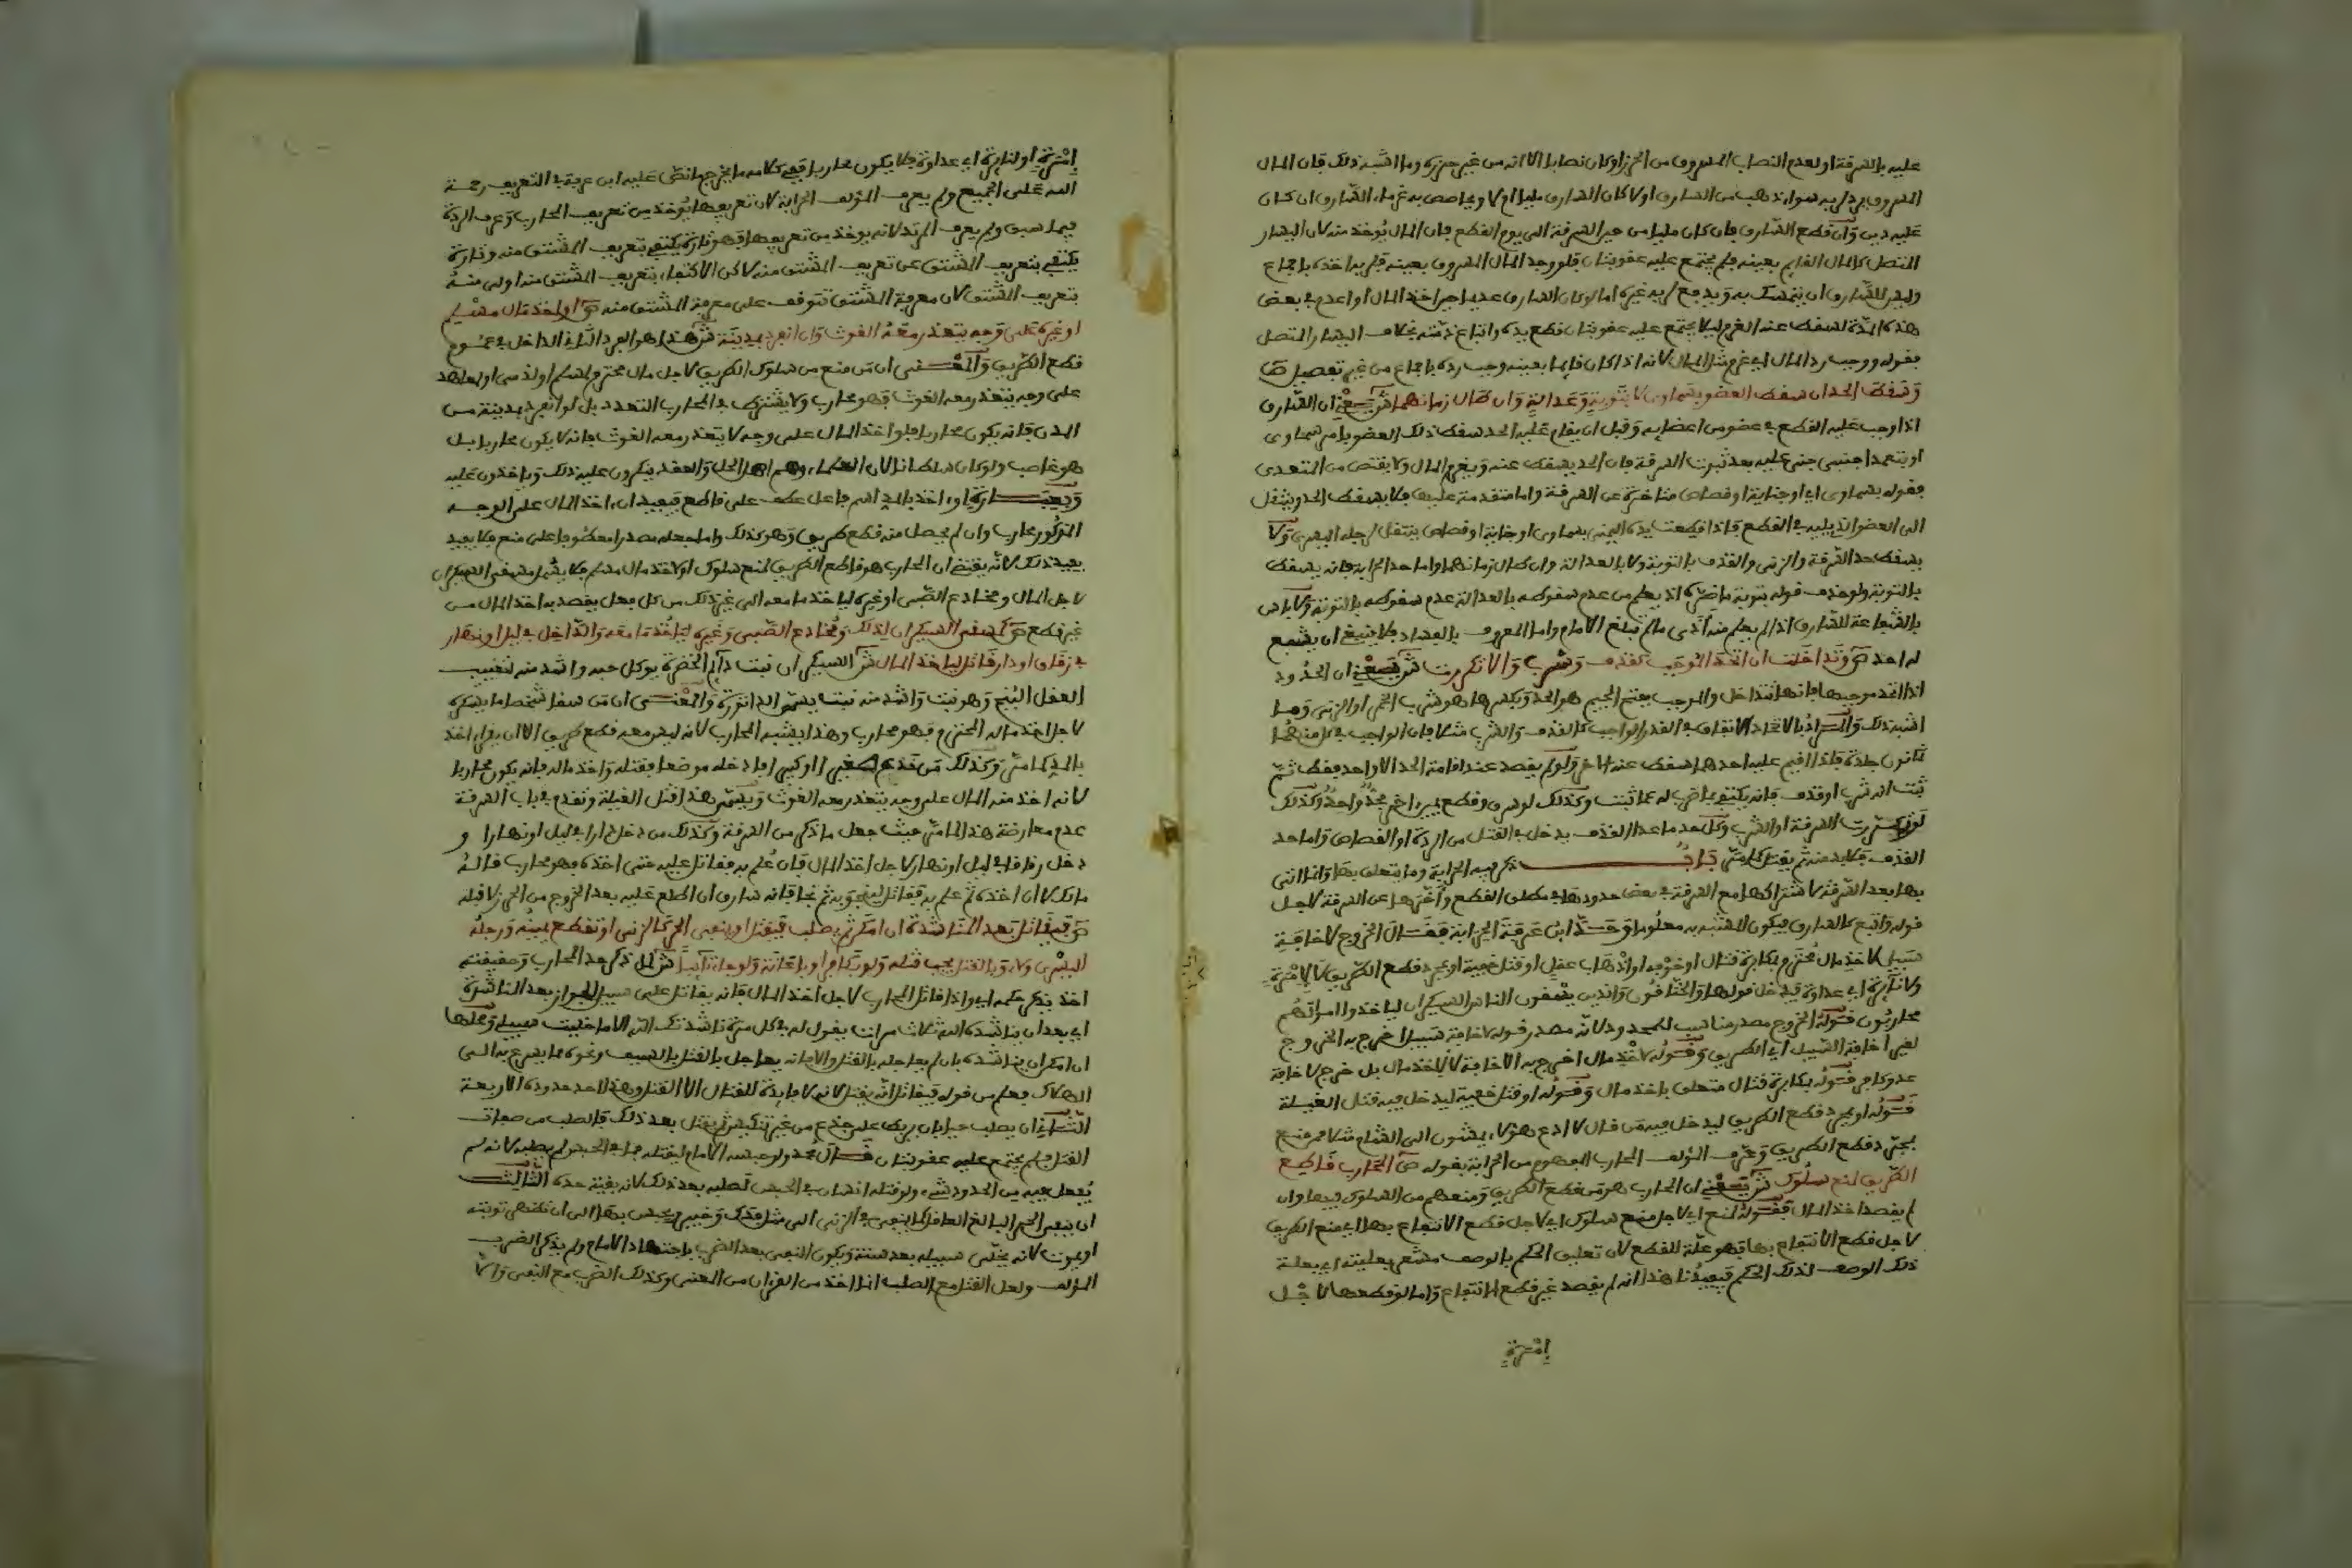 عليه بالسرقة او لعدم النصاب المسروق من الحرز او كان نصابا الا انه من غير حرزه وما اشبه ذلك فان المال
المسروق يرد لربه سواء ذهب من السارق او لا كان السارق مليا ام لا ويحاصص به غرماء السارق ان كان
عليه دين وان قطع السارق فان كان مليا من حين السرقة الى يوم القطع فان المال يؤخذ منه لان اليسار
المتصل كالمال القائم بعينه فلم يجتمع عليه عقوبتان فلو وجد المال المسروق بعينه فلربه اخذه باجماع
وليس للسارق ان يتمسك به ويدفع لربه غيره اما لو كان السارق عديما حين اخذ المال او اعدم في بعض
هذه المدة لسقط عنه الغرم ليلا يجتمع عليه عقوبتان قطع يده واتباع ذمته بخلاف اليسار المتصل
فقوله ووجب رد المال اي غرم مثل المال لانه اذا كان قائما بعينه وجب رده باجماع من غير تفصيل ص
وسقط الحد ان سقط العضو بسماوي لا بتوبة وعدالة وان طال زمانهما ش يعني ان السارق
اذا وجب عليه القطع في عضو من اعضائه وقبل ان يقام عليه الحد سقط ذلك العضو بامر سماوي
او بتعمد اجنبي جنى عليه بعد ثبوت السرقة فان الحد يسقط عنه ويغرم المال ولا يقتص من المتعدي
فقوله بسماوي اي او جناية او قصاص متاخرة عن السرقة واما متقدمة عليها فلا يسقط الحد وينتقل
الى العضو الذي يليه في القطع فاذا قطعت يده اليمنى بسماوي او جناية او قصاص ينتقل لرجله اليسرى ولا
يسقط حد السرقة والزنى والقذف بالتوبة ولا بالعدالة وان طال زمانهما واما حد الحرابة فانه يسقط
بالتوبة ولو حذف قوله بتوبة ما ضره اذ يعلم من عدم سقوطه بالعدالة عدم سقوطه بالتوبة ولا باس
بالشفاعة للسارق اذا لم يعلم منه اذى ما لم تبلغ الامام واما المعروف بالفساد فلا ينبغي ان يشفع
له احد ص وتداخلت ان اتحد الموجب كقذف وشرب او تكررت ش يعني ان الحدود
اذا اتحد موجبها فانها تتداخل والموجب بفتح الجيم هو الحد وبكسرها هو شرب الخمر او الزنى وما
اشبه ذلك والمراد بالاتحاد الاتفاق في القدر الواجب كالقذف والشرب مثلا فان الواجب في كل منهما
ثمانون جلدة فاذا اقيم عليه احدهما سقط عنه الاخر ولو لم يقصد عند اقامة الحد الا واحد فقط ثم
ثبت انه شرب او قذف فانه يكتفى بما ضرب له عما ثبت وكذلك لو سرق وقطع يمين اخر بحد واحد وكذلك
لو تكررت السرقة او الشرب وكل حد ما عدا القذف يدخل في القتل من الردة او القصاص واما حد
القذف فلا بد منه ثم يقتل كما مر باب ذكر فيه الحرابة وما يتعلق بها وانما اتى
بها بعد السرقة لاشتراكها مع السرقة في بعض حدودها في مطلق القطع واخرها عن السرقة لاجل
قوله واتبع كالسارق فيكون المشبه به معلوما وحد ابن عرفة الحرابة فقال الخروج لاخافة
سبيل لاخذ مال محترم بمكابرة قتال او خوفه او اذهاب عقل او قتل خفية او بمجرد قطع الطريق لا لامرة
ولا نائرة اي عداوة فيدخل قولها والخناقون والذين يسقون الناس السيكران لياخذوا اموالهم
محاربون فقوله الخروج مصدر مناسب للمحدود لانه مصدر قوله لاخافة سبيل اخرج به الخروج
لغير اخافة السبيل اي الطريق وقوله لاخذ مال اخرج به الاخافة لا لاخذ مال بل خرج لاخافة
عدو كافر قوله بمكابرة قتال متعلق باخذ مال وقوله او قتل خفية ليدخل فيه قتال الغيلة
قوله او بمجرد قطع الطريق ليدخل فيه من قال لا ادع هؤلاء يمشون الى الشام مثلا فمنع
بمجرد قطع الطريق وعرف المؤلف المحارب المفهوم من الحرابة بقوله ص المحارب قاطع
الطريق لمنع سلوك ش يعني ان المحارب هو من قطع الطريق ومنعهم من السلوك فيها وان
لم يقصد اخذ المال فقوله لمنع اي لاجل منع سلوك اي لاجل قطع الانتفاع بها اي منع الطريق
لاجل قطع الانتفاع بها فهو علة للقطع لان تعليق الحكم بالوصف مشعر بعليته اي بعلية
ذلك الوصف لذلك الحكم فيفيدنا هذا انه لم يقصد غير قطع الانتفاع واما لو قطعها لاجل
امرة
امرة او لنائرة اي عداوة فلا يكون محاربا ففي كلامه ما يخرج ما نص عليه ابن عرفة في التعريف رحمة
الله على الجميع ولم يعرف المؤلف الحرابة لان تعريفها يؤخذ من تعريف المحارب وعرف الردة
فيما سبق ولم يعرف المرتد لانه يؤخذ من تعريفها فهو تارة يكتفي بتعريف المشتق منه وتارة
يكتفي بتعريف المشتق عن تعريف المشتق منه لاكن الاكتفاء بتعريف المشتق منه اولى منه
بتعريف المشتق لان معرفة المشتق تتوقف على معرفة المشتق منه ص او اخذ مال مسلم
او غيره على وجه يتعذر معه الغوث وان انفرد بمدينة ش هذا هو الفرد الثاني الداخل في عموم
قطع الطريق والمعنى ان من منع من سلوك الطريق لاجل مال محترم لمسلم او لذمي او لمعاهد
على وجه يتعذر معه الغوث فهو محارب ولا يشترط في المحارب التعدد بل لو انفرد بمدينة من
المدن فانه يكون محاربا فلو اخذ المال على وجه لا يتعذر معه الغوث فانه لا يكون محاربا بل
هو غاصب ولو كان سلطانا لان العلماء وهم اهل الحل والعقد ينكرون عليه ذلك وياخذون عليه
او اخذ بالمد اسم فاعل عطف على قاطع فيفيد ان اخذ المال على الوجه
المذكور محارب وان لم يحصل منه قطع طريق وهو كذلك واما جعله مصدرا معطوفا على منع فلا يفيد
يفيد ذلك لانه يقتضي ان المحارب هو قاطع الطريق لمنع سلوك او لاخذ مال مسلم فلا يشمل مسقي السيكران
لاجل المال ومخادع الصبي او غيره لياخذ ما معه الى غير ذلك من كل فعل يقصد به اخذ المال من
غير قطع ص كمسقي السيكران لذلك ومخادع الصبي وغيره لياخذ ما معه والداخل في ليل او نهار
في زقاق او دار قاتل لياخذ المال ش السيكران نبت دائم الخضرة يوكل حبه واشد منه لتغييب
العقل البنج وهو نبت واشد منه نبت يسمى الداتورة والمعنى ان من سقا شخصا ما يسكره
لاجل اخذ ماله المحترم فهو محارب وهذا يشبه المحارب لانه ليس معه قطع طريق الا ان يقرا اخذ
بالمد كما مر وكذلك من خدع صغيرا او كبيرا فادخله موضعا فقتله واخذ ماله فانه يكون محاربا
لانه اخذ منه المال على وجه يتعذر معه الغوث ويسمى هذا قتل الغيلة وتقدم في باب السرقة
عدم معارضة هذا لما مر حيث جعل ما ذكر من السرقة وكذلك من دخل دارا في ليل او نهارا و
دخل زقاقا في ليل او نهار لاجل اخذ المال فان علم به فقاتل عليه حتى اخذه فهو محارب قاله
مالك لا ان اخذه ثم علم به فقاتل لينجو به ثم نجا فانه سارق ان اطلع عليه بعد الخروج من الحرز لا قبله
ص فيقاتل بعد المناشدة ان امكن ثم يصلب فيقتل او ينفى الحر كالزنى او تقطع يمينه ورجله
اليسرى ولاء وبالقتل يجب قتله ولو بكافر او باعانة ولو جاء تائبا ش لما ذكر حد المحارب وحقيقته
اخذ يذكر حكمه اي واذا قاتل المحارب لاجل اخذ المال فانه يقاتل على سبيل الجواز بعد المناشدة
اي بعد ان يناشده الله ثلاث مرات يقول له في كل مرة ناشدتك الله الا ما خليت سبيلي ومحلها
ان امكن ان يناشده بان لم يعاجله بالقتل والا فانه يعاجل بالقتل بالسيف ونحوه مما يسرع به الى
الهلاك فعلم من قوله فيقاتل انه يقتل لانه لا فايدة للقتال الا القتل وهذا احد حدوده الاربعة
الثاني ان يصلب حيا بان يربط على جذع من غير تنكيس ثم يقتل بعد ذلك فالصلب من صفات
القتل فلم يجتمع عليه عقوبتان قال محمد ولو حبسه الامام ليقتله فمات في الحبس لم يصلبه لانه لم
يفعل فيه من الحدود شيء ولو قتله انسان في الحبس لصلبه بعد ذلك لانه بقية حده الثالث
ان ينفى الحر البالغ العاقل كما ينفى في الزنى الى مثل فدك وخيبر ويحبس بها الى ان تظهر توبته
او يموت لانه يخلى سبيله بعد سنة ويكون النفي بعد الضرب باجتهاد الامام ولم يذكر الضرب
المؤلف ولعل القتل مع الصلب انما اخذ من القرءان من المعنى وكذلك الضرب مع النفي والا